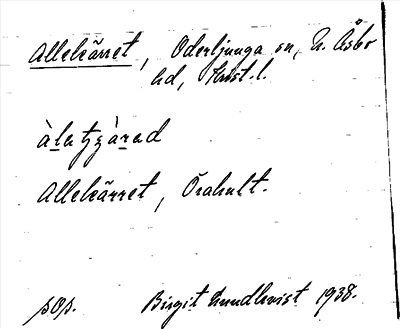 Allekärret, Oderljunga sn, N. Åsbo
hd, Krist. l.
Allekärret, Örahult.
sOp. Birgit Lundkvist 1938.